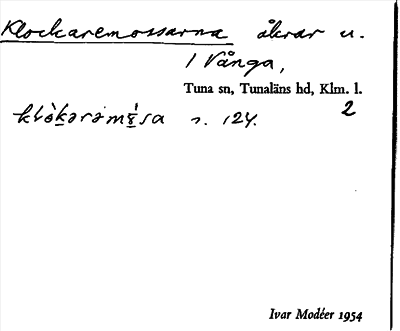 Klockaremossarna åkrar u.
1 Vånga,
Tuna sn, Tunaläns hd, Klm. l.
2
s. 124.
Ivar Modéer 1954